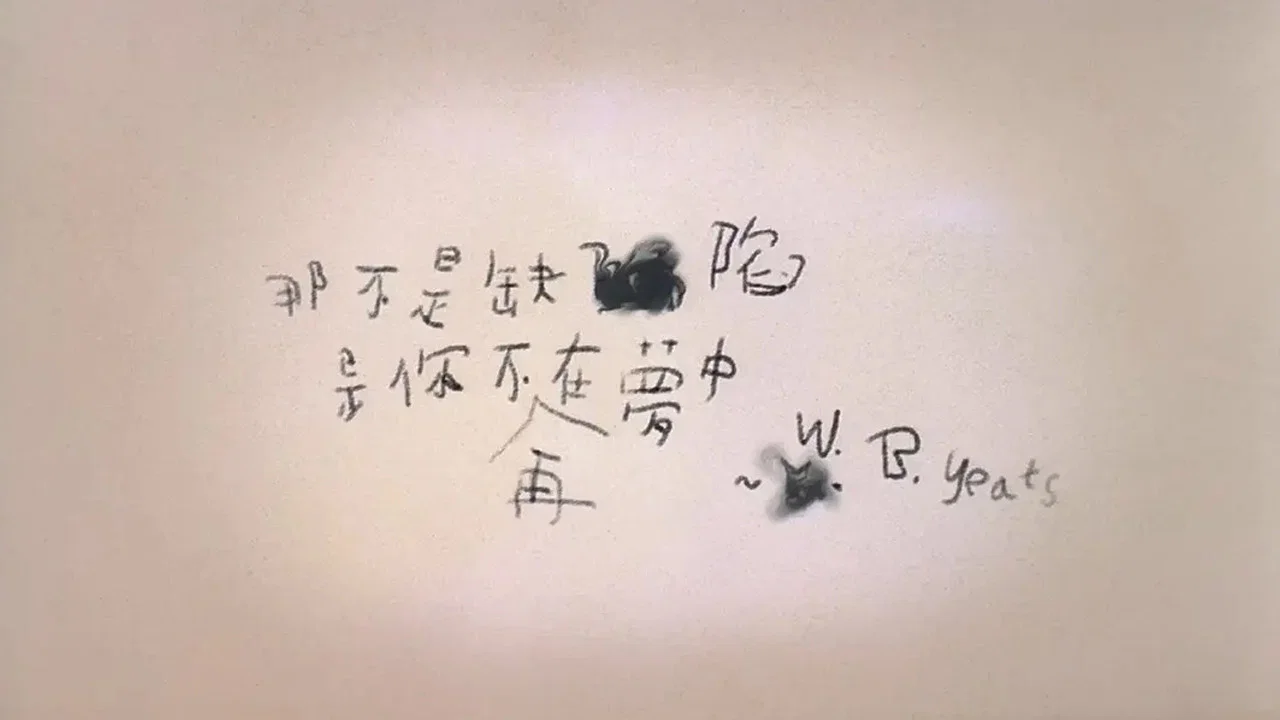 那不是缺陷
是你不再在夢中
~ W. B. yeats